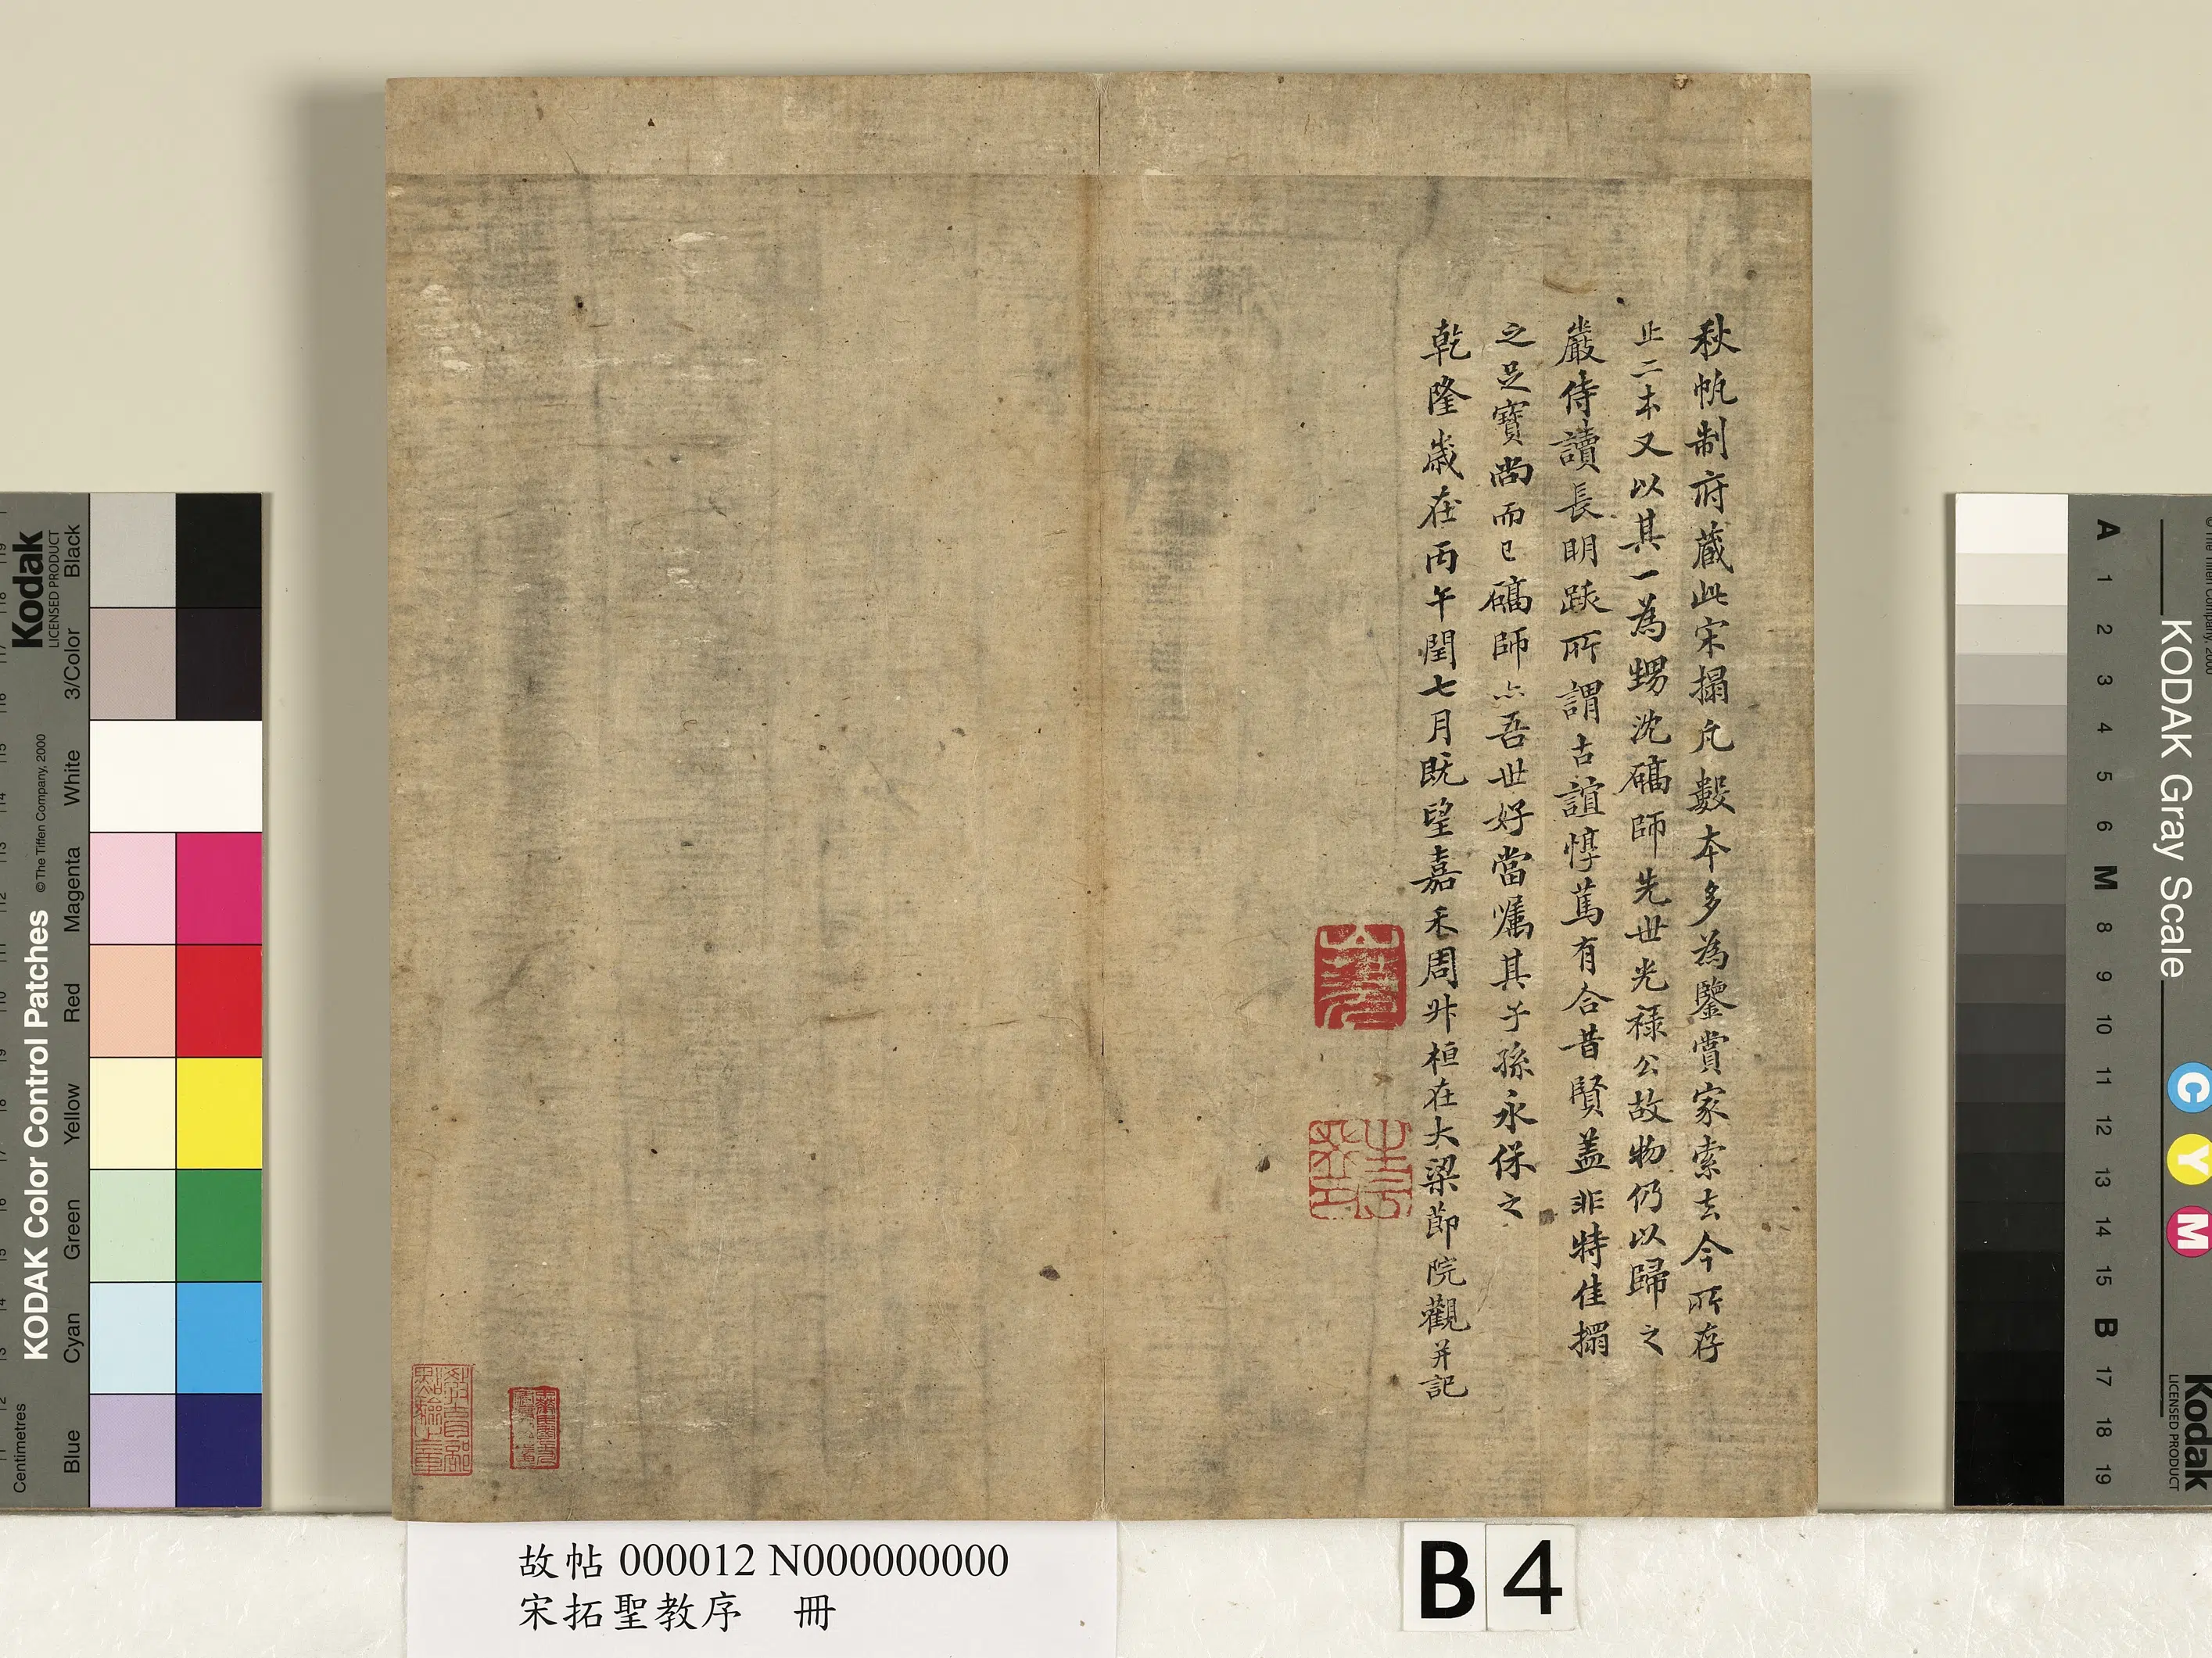 秋帆制府藏此宋搨凡數本多為鑒賞家索去今所存
止二本又以其一為甥沈礄師先世光祿公故物仍以歸之
嚴侍讀長明跋所謂古誼惇篤有合昔賢蓋非特佳搨
之足寶尚而已礄師亦吾世好當嘱其子孫永保之
乾隆歲在丙午閏七月既望嘉禾周升桓在大梁節院觀并記
故帖 000012 N000000000
宋拓聖教序 冊
B 4
Kodak
LICENSED PRODUCT
KODAK Color Control Patches
©The Tiffen Company, 2000
Centimetres
Blue
Cyan
Green
Yellow
Red
Magenta
White
3/Color
Black
KODAK Gray Scale
A 1 2 3 4 5 6 M 8 9 10 11 12 13 14 15 B 17 18 19
C Y M
Kodak
LICENSED PRODUCT